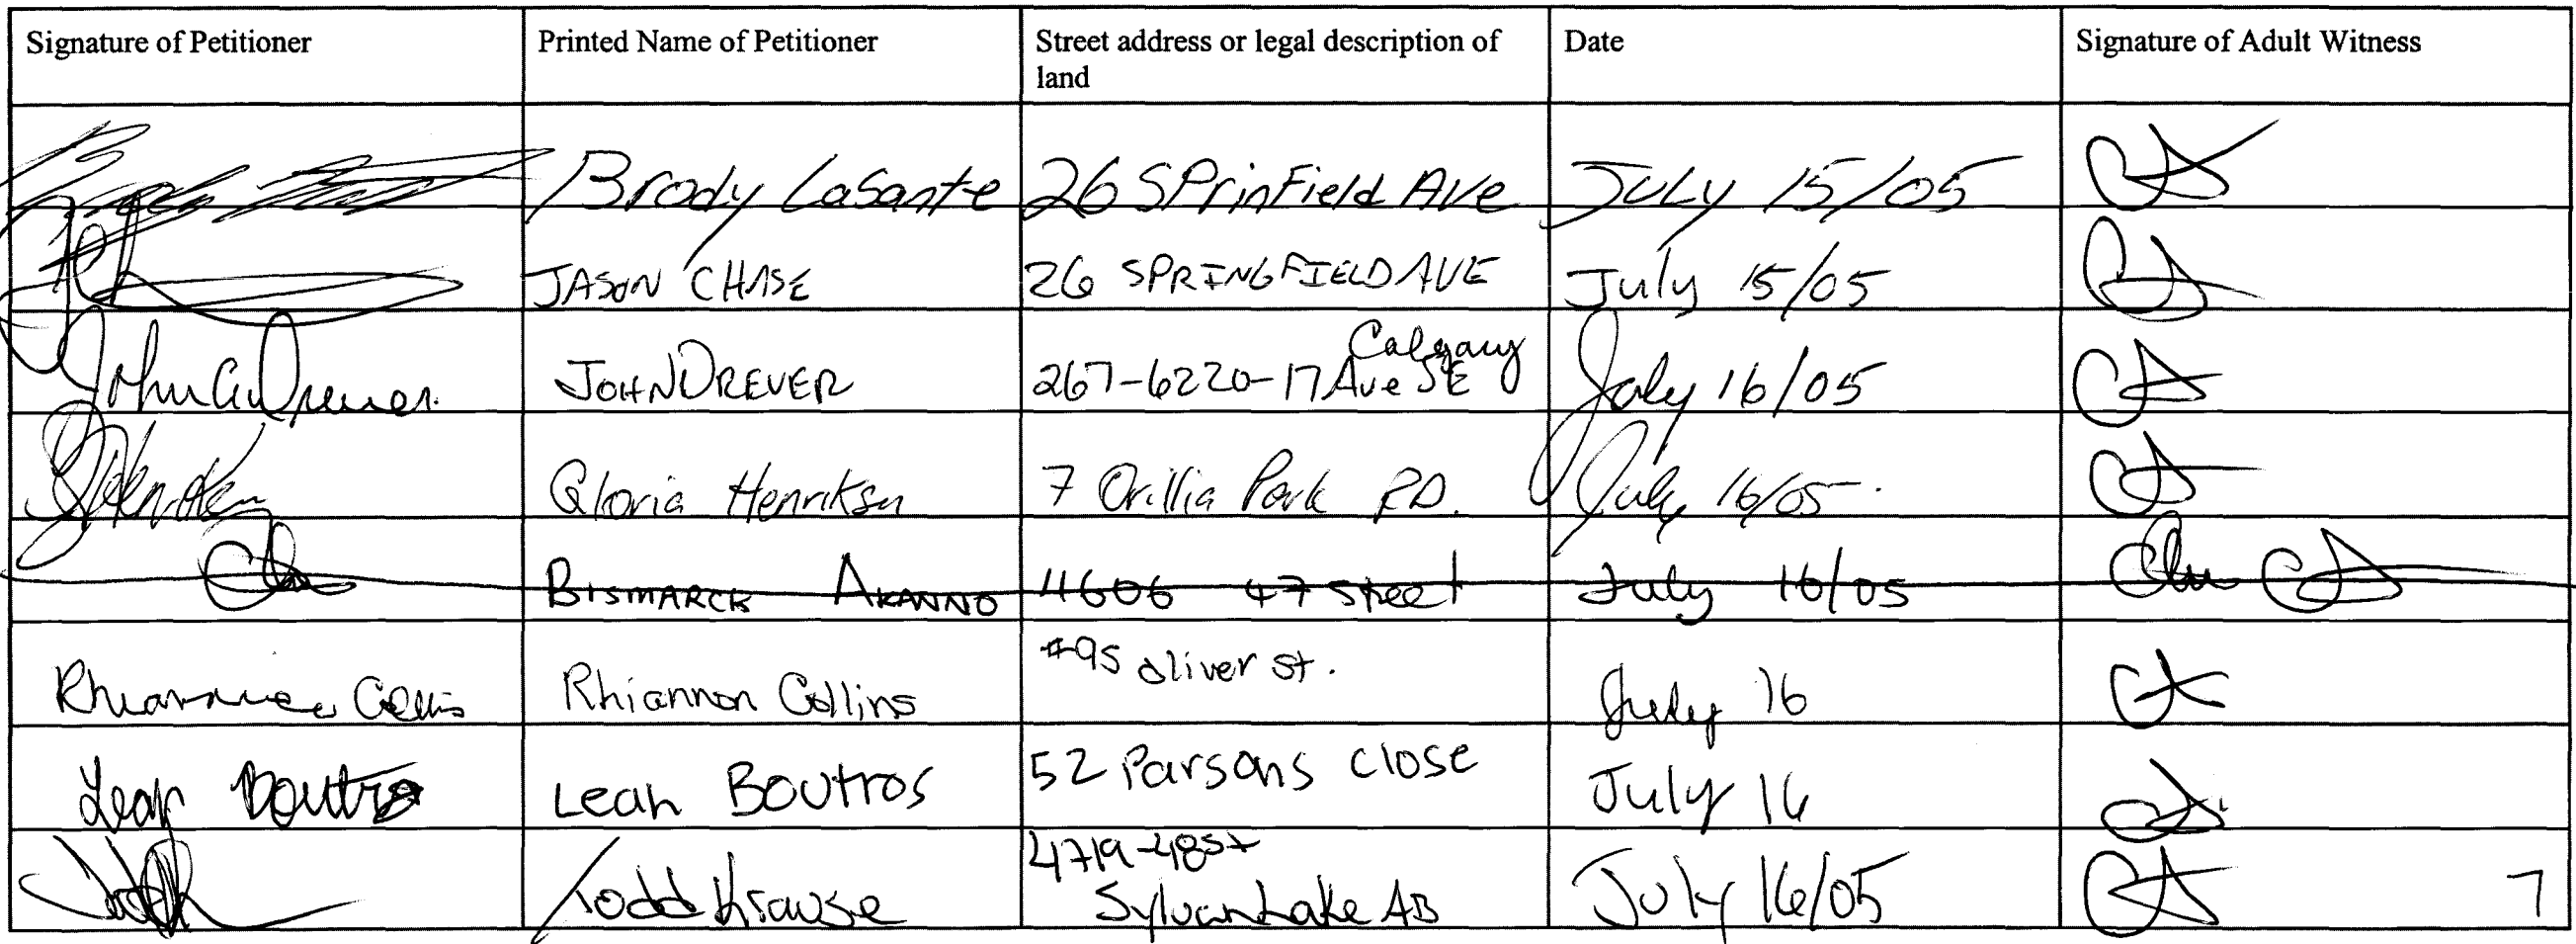 Signature of Petitioner Printed Name of Petitioner Street address or legal description of land Date Signature of Adult Witness
Brody LaSante 26 SPrinField Ave JULY 15/05
JASON CHASE 26 SPRINGFIELD AVE July 15/05
John G. Drever JOHN DREVER 267-6220-17 Ave SE Calgary July 16/05
Gloria Henriksen 7 Orillia Park RD. July 16/05
BISMARCK AKANNO 4606 47 Street July 16/05
Rhiannon Collins Rhiannon Collins #95 oliver st. July 16
Leah Boutros Leah Boutros 52 Parsons close July 16
Todd Krause 4719-48st Sylvan Lake AB July 16/05
7